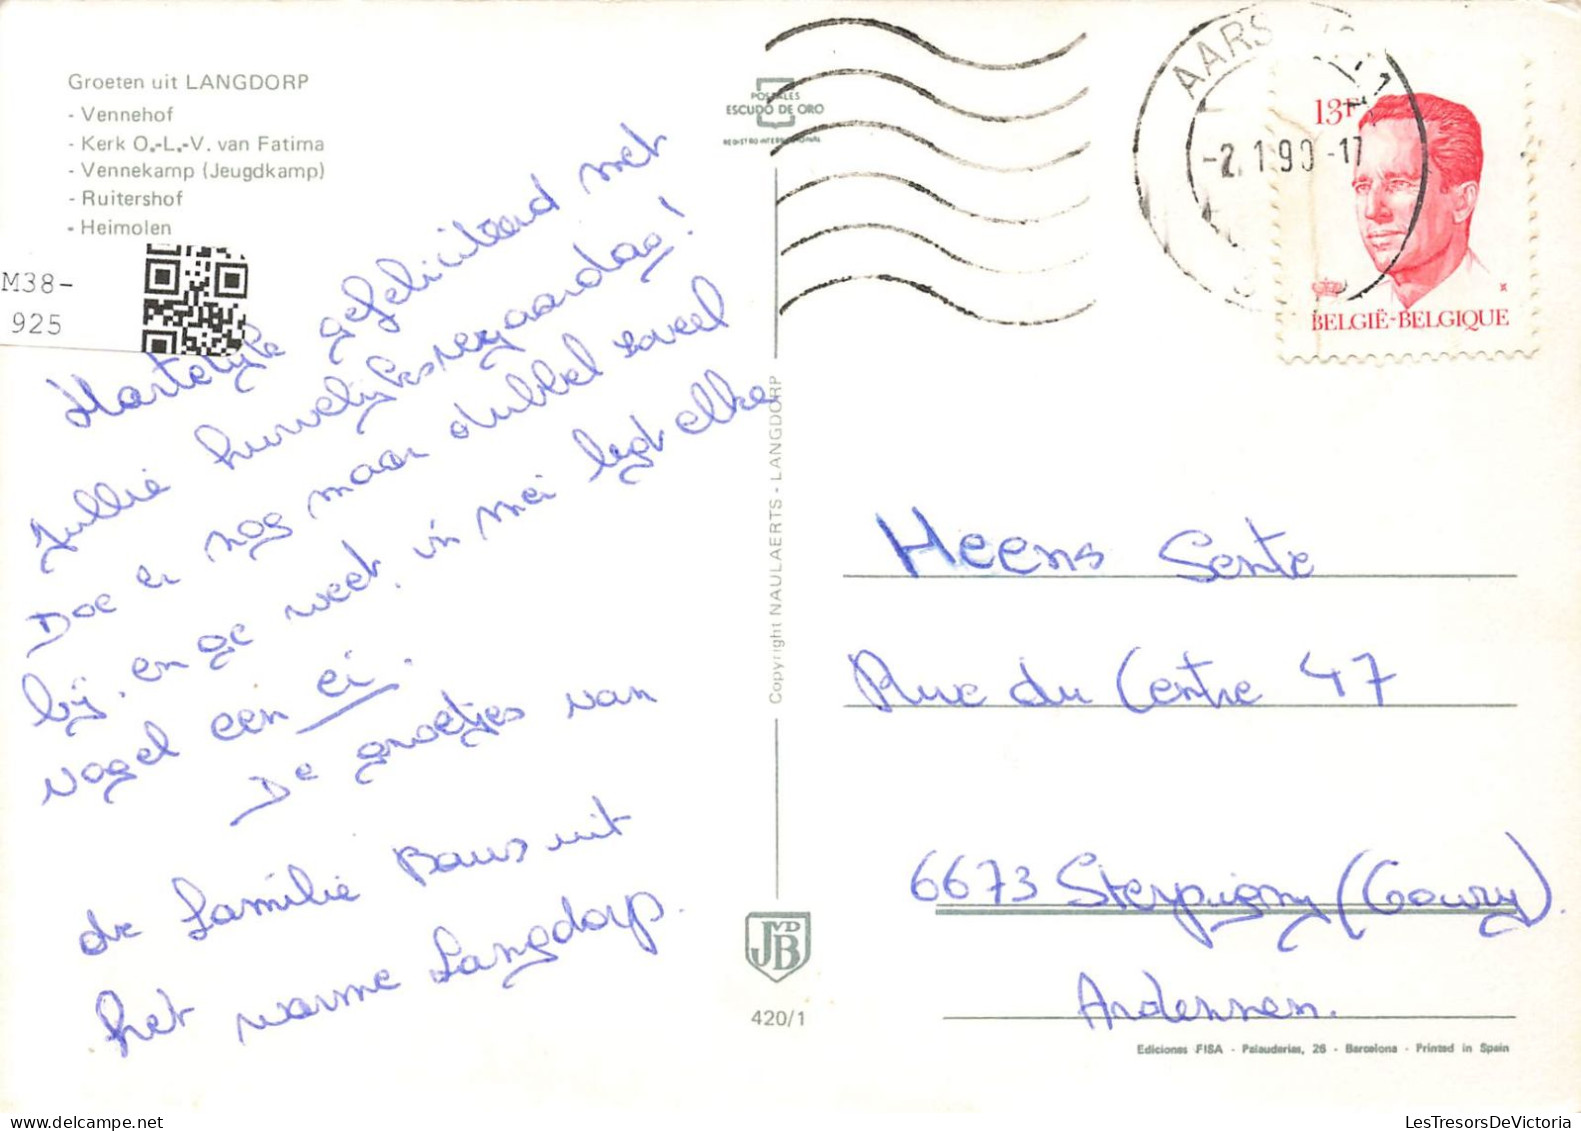 Groeten uit LANGDORP
- Vennehof
- Kerk O.-L.-V. van Fatima
- Vennekamp (Jeugdkamp)
- Ruitershof
- Heimolen
M38-
925
Hartelijke gefeliciteerd met
jullie huwelijksverjaardag!
Doe er nog maar dubbel zoveel
bij, en ge weet, in mei legt elke
vogel een ei.
De groetjes van
de familie Baus uit
het warme Langdorp.
POSTALES
ESCUDO DE ORO
REGISTRO INTERNACIONAL
Copyright NAULAERTS - LANGDORP
JVDB
420/1
AARS
-2.1.90-17
13F
BELGIË-BELGIQUE
Heens Sente
Rue du Centre 47
6673 Sterpigny (Gouvy).
Ardennen.
Ediciones FISA - Palauderias, 26 - Barcelona - Printed in Spain
LesTresorsDeVictoria.com